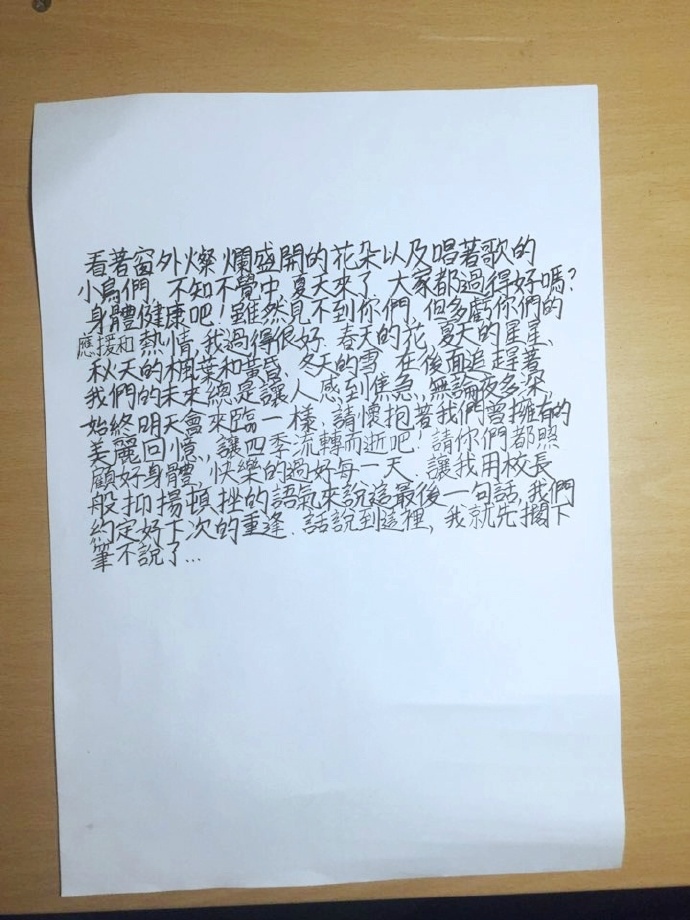 看著窗外燦爛盛開的花朵以及唱著歌的
小鳥們 不知不覺中 夏天來了 大家都過得好嗎?
身體健康吧!雖然見不到你們,但多虧你們的
應援和熱情,我過得很好.春天的花,夏天的星星、
秋天的楓葉和黃昏、冬天的雪 在後面追趕著
我們的未來總是讓人感到焦急,無論夜多深,
始終明天會來臨一樣,請懷抱著我們曾擁有的
美麗回憶,讓四季流轉而逝吧!請你們都照
顧好身體,快樂的過好每一天.讓我用校長
般抑揚頓挫的語氣來說這最後一句話,我們
約定好下次的重逢.話說到這裡,我就先擱下
筆不說了...